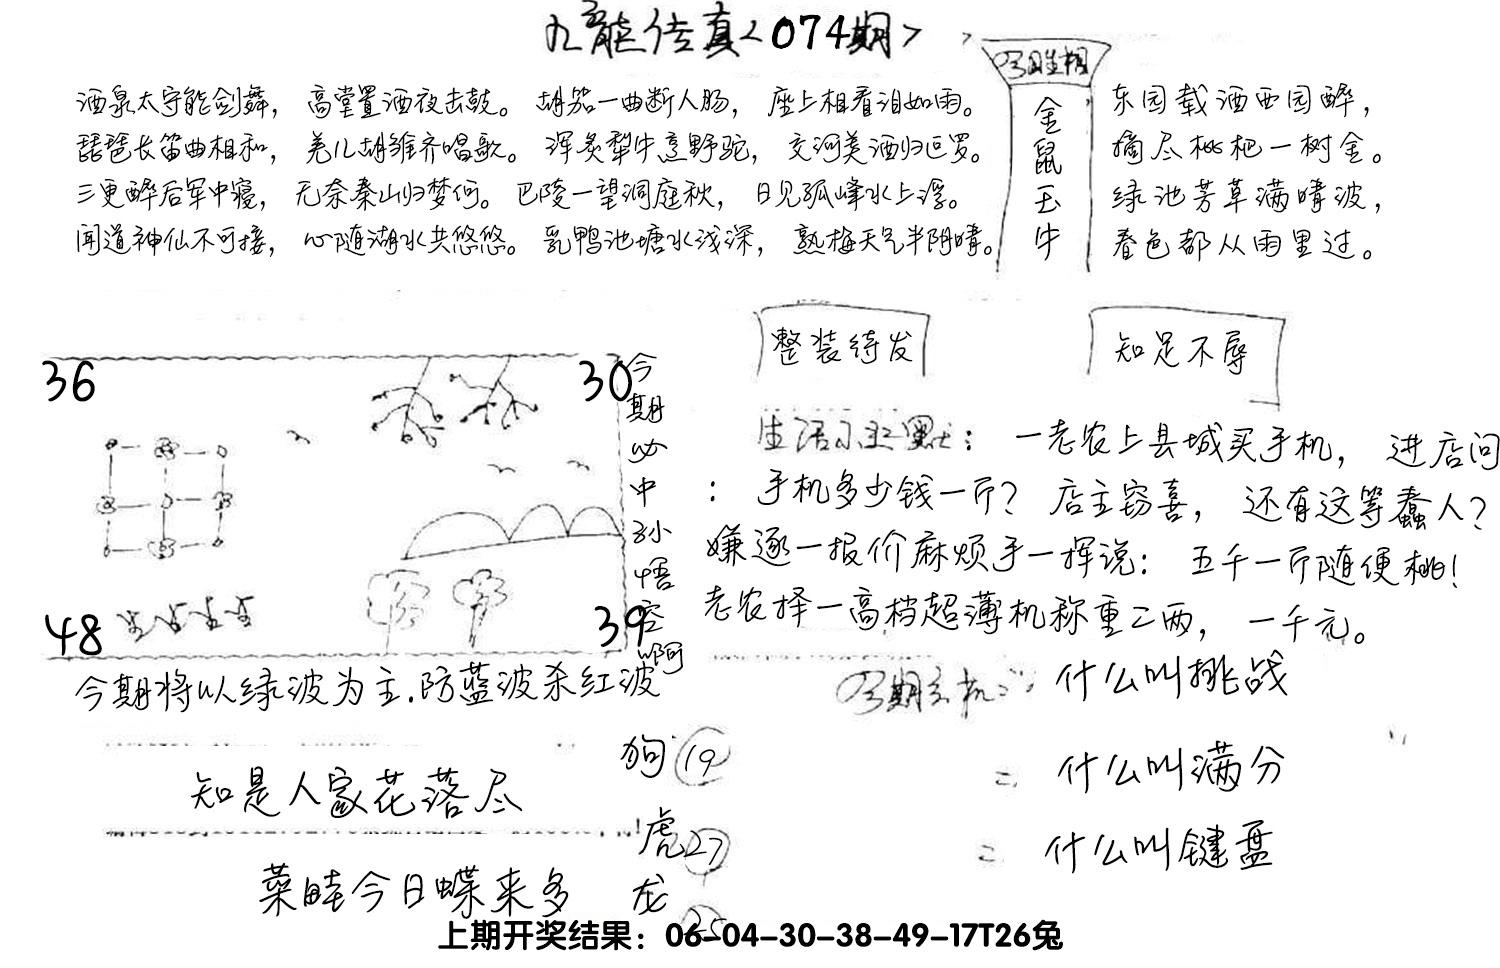 九龙传真<074期>
酒泉太守能剑舞，高堂置酒夜击鼓。胡笳一曲断人肠，座上相看泪如雨。
琵琶长笛曲相和，羌儿胡雏齐唱歌。浑炙犁牛烹野驼，交河美酒归叵罗。
三更醉后军中寝，无奈秦山归梦何。巴陵一望洞庭秋，日见孤峰水上浮。
闻道神仙不可接，心随湖水共悠悠。乳鸭池塘水浅深，熟梅天气半阴晴。
金鼠玉牛
东园载酒西园醉，
摘尽枇杷一树金。
绿池芳草满晴波，
春色都从雨里过。
整装待发
知足不辱
36
30
48
39
今期必中孙悟空啊
今期将以绿波为主.防蓝波杀红波
生活小幽默：一老农上县城买手机，进店问
：手机多少钱一斤？店主窃喜，还有这等蠢人？
嫌逐一报价麻烦手一挥说：五千一斤随便桃！
老农择一高档超薄机称重二两，一千元。
什么叫挑战
二 什么叫满分
二 什么叫键盘
知是人家花落尽
菜畦今日蝶来多
狗 19
虎 27
龙 25
上期开奖结果：06-04-30-38-49-17T26兔